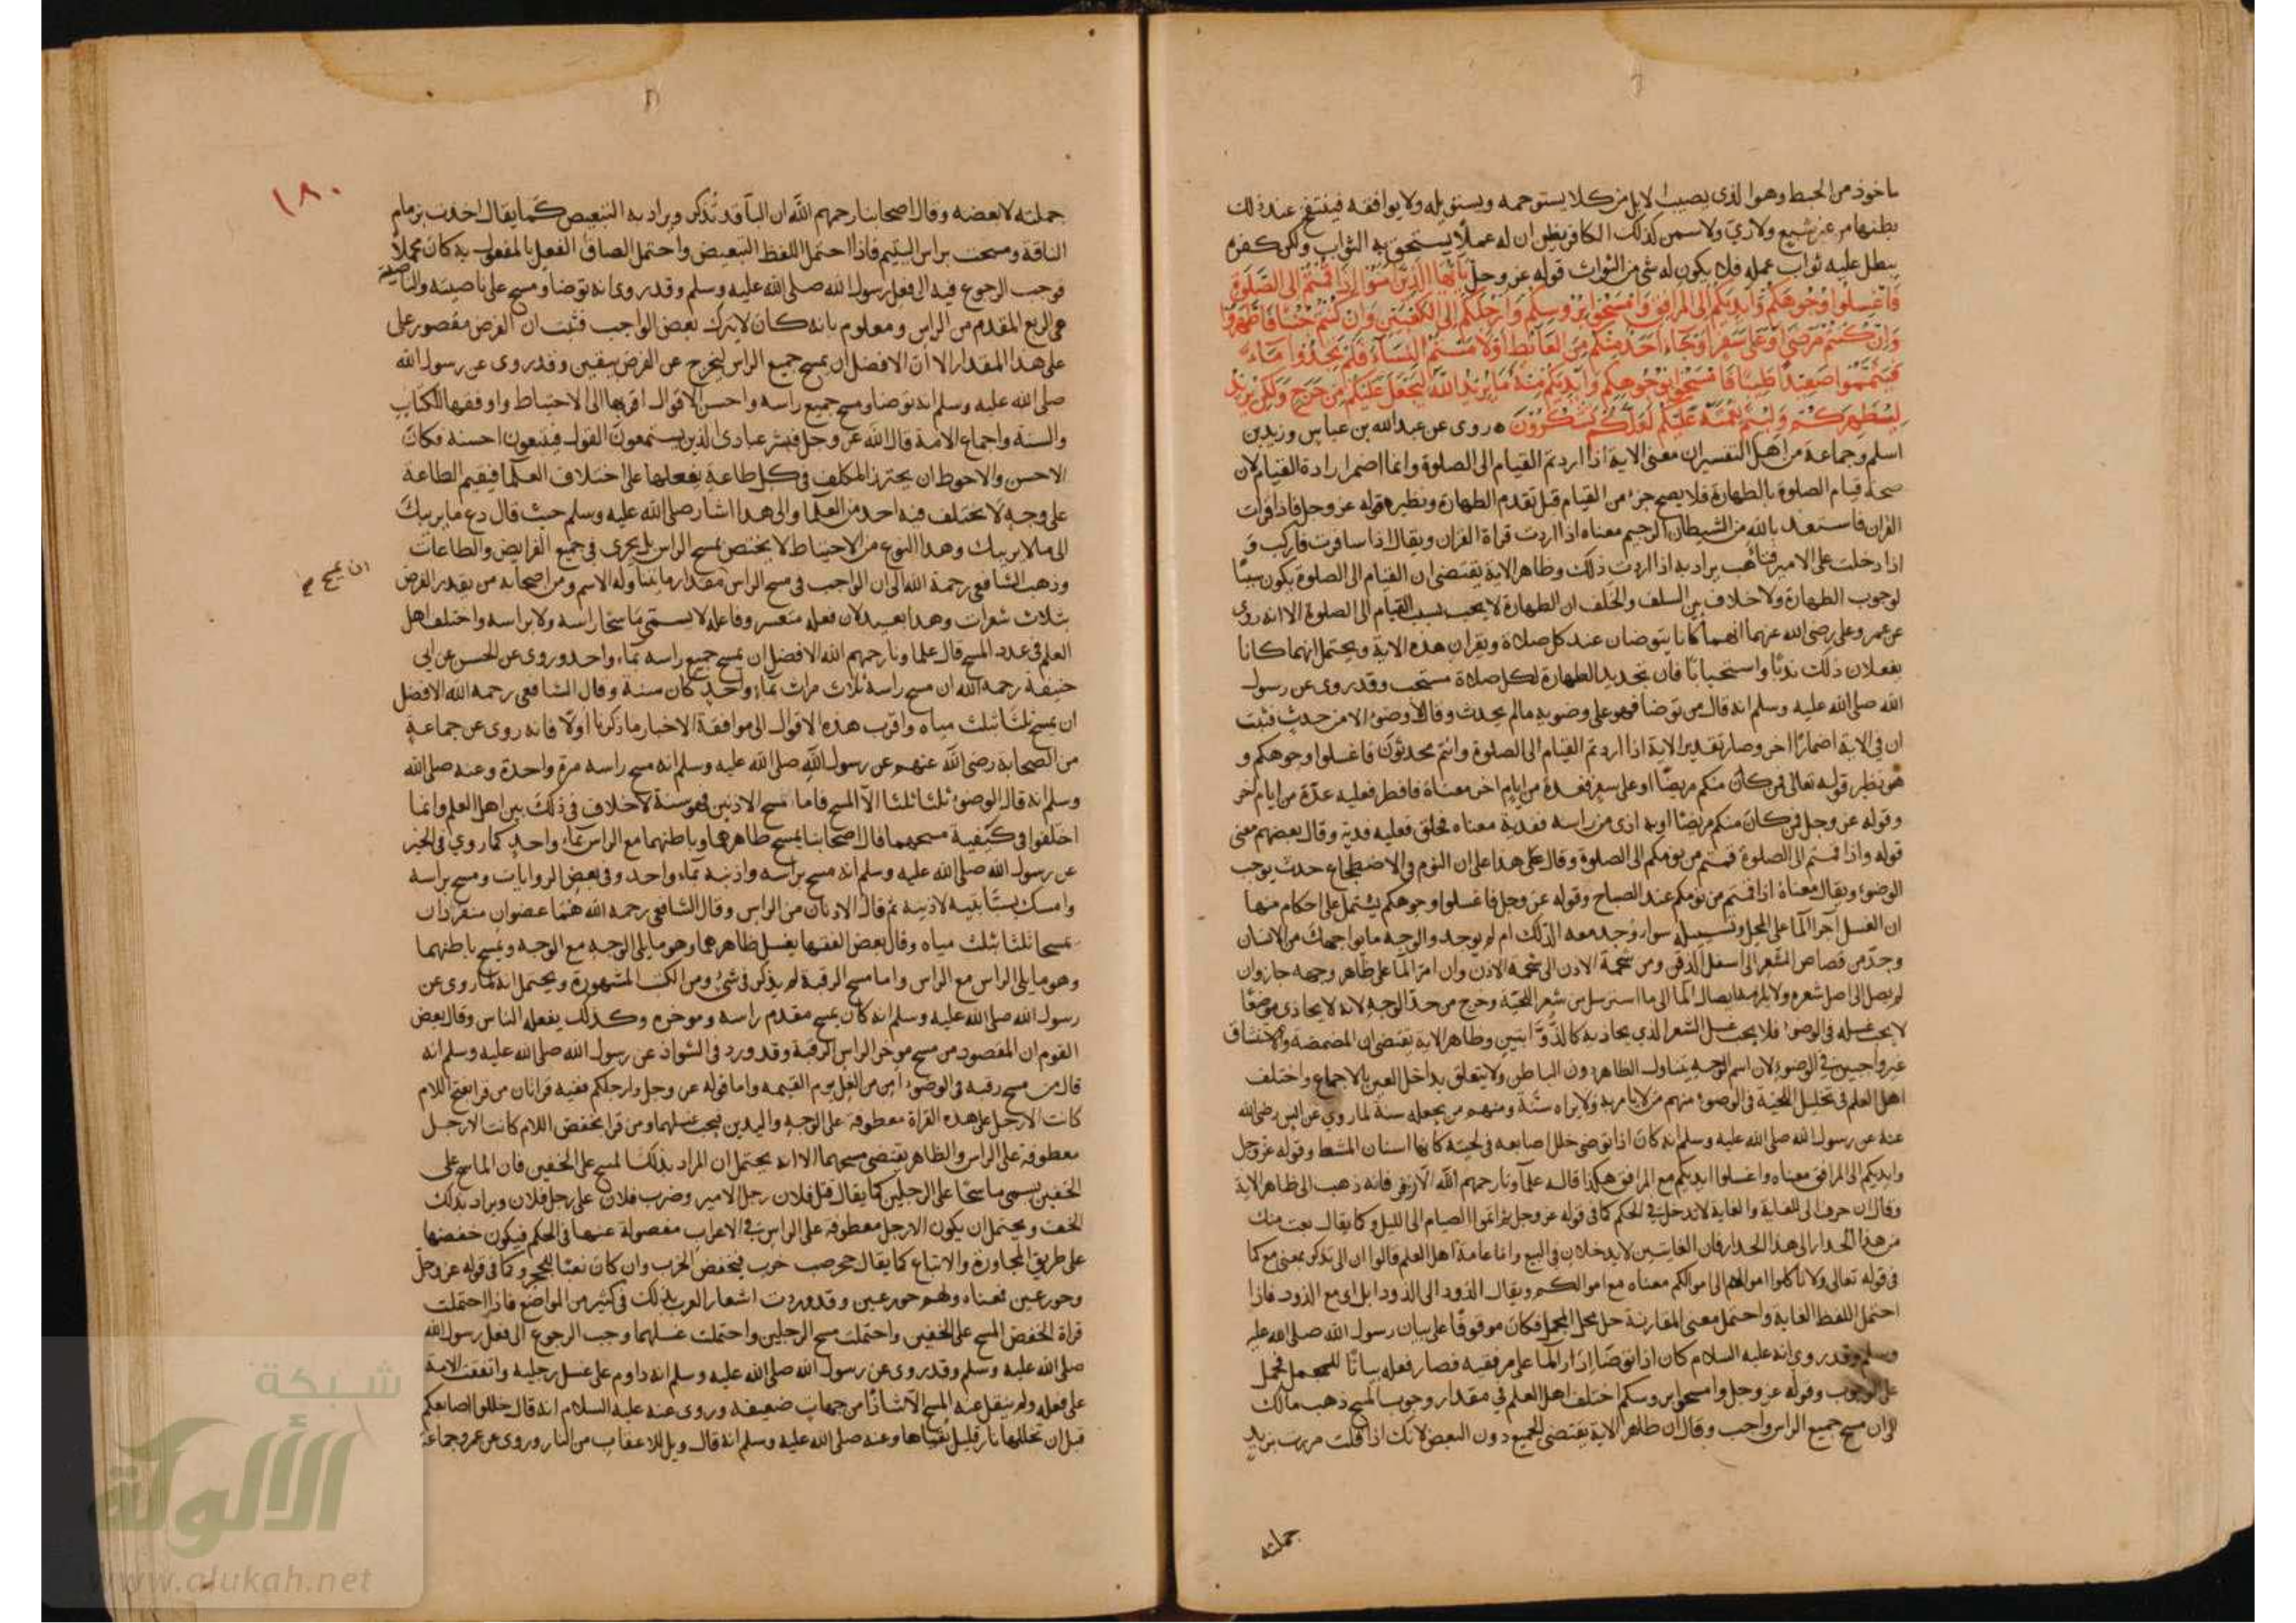 ماخوذ من الحبط وهو الذى يصيب الابل من كلا يستوجمه ويستوبله ولا يوافقه فينتفخ عند ذلك
بطنها من غير شبع ولا رىّ ولا سمن كذلك الكافر يظن ان له عملًا يستحق به الثواب ولكن كفره
يبطل عليه ثواب عمله فلا يكون له شى من الثواب قوله عز وجل يايها الذين امنوا اذا قمتم الى الصلوة
فاغسلوا وجوهكم وايديكم الى المرافق وامسحوا بروسكم وارجلكم الى الكعبين وان كنتم جنبًا فاطهروا
وان كنتم مرضى او على سفر او جاء احد منكم من الغائط او لامستم النساء فلم تجدوا ماء
فتيمموا صعيدًا طيبًا فامسحوا بوجوهكم وايديكم منه ما يريد الله ليجعل عليكم من حرج ولكن يريد
ليطهركم وليتم نعمته عليكم لعلكم تشكرون ه روى عن عبدالله بن عباس وزيد بن
اسلم وجماعة من اهل التفسير ان معنى الاية اذا اردتم القيام الى الصلوة وانما اضمر ارادة القيام لان
صحة قيام الصلوة بالطهارة فلا يصح جزء من القيام قبل تقدم الطهارة ونظيره قوله عز وجل فاذا قرات
القران فاستعذ بالله من الشيطان الرجيم معناه اذا اردت قراة القران ويقال اذا سافرت فاركب و
اذا دخلت على الامير فتاهب يراد به اذا اردت ذلك وظاهر الاية يقتضى ان القيام الى الصلوة يكون سببًا
لوجوب الطهارة ولا خلاف بين السلف والخلف ان الطهارة لا يجب بسبب القيام الى الصلوة الا انه روى
عن عمر وعلى رضى الله عنهما انهما كانا يتوضان عند كل صلاة ويقران هذه الاية ويحتمل انهما كانا
يفعلان ذلك ندبًا واستحبابًا فان تجديد الطهارة لكل صلاة مستحب وقد روى عن رسول
الله صلى الله عليه وسلم انه قال من توضا فهو على وضويه مالم يحدث وقال لا وضوء الا من حدث فثبت
ان فى الاية اضمارًا اخر وصار تقدير الاية اذا اردتم القيام الى الصلوة وانتم محدثون فاغسلوا وجوهكم و
هو نظير قوله تعالى فمن كان منكم مريضًا او على سفر فعدة من ايام اخر معناه فافطر فعليه عدة من ايام اخر
وقوله عز وجل فمن كان منكم مريضًا او به اذى من راسه ففدية معناه فحلق فعليه فدية وقال بعضهم معنى
قوله واذا قمتم الى الصلوة قمتم من نومكم الى الصلوة وقال على هذا على ان النوم والاضطجاع حدث يوجب
الوضوء ويقال معناه اذا قمتم من نومكم عند الصباح وقوله عز وجل فاغسلوا وجوهكم يشتمل على احكام منها
ان الغسل اجرا الما على المحل وتسييله سوا وجد معه الدلك ام لم يوجد والوجه ما يواجهك من الانسان
وحدّ من قصاص الشعر الى اسفل الذقن ومن شحمة الاذن الى شحمة الاذن وان امرّ الما على ظاهر وجهه جاز وان
لم يصل الى اصل شعره ولا يلزمه ايصال الما الى ما استرسل من شعر اللحية وخرج من حد الوجه لانه لا يحاذى موضعًا
لا يجب غسله فى الوضوء فلا يجب غسل الشعر الذى يحاذيه كالذوابتين وظاهر الاية يقتضى ان المضمضة والاستنشاق
غير واجبين فى الوضوء لان اسم الوجه يتناول الظاهر دون الباطن ولا يتعلق بداخل العين بالاجماع واختلف
اهل العلم فى تخليل اللحية فى الوضوء منهم من لا يامر به ولا يراه سنة ومنهم من يجعله سنة لما روي عن انس رضى الله
عنه عن رسول الله صلى الله عليه وسلم انه كان اذا توضى خلل اصابعه فى لحيته كانها اسنان المشط وقوله عز وجل
وايديكم الى المرافق معناه واغسلوا ايديكم مع المرافق هكذا قاله علماونا رحمهم الله الا زفر فانه ذهب الى ظاهر الاية
وقال ان حرف الى للغاية والغاية لا تدخل فى الحكم كما فى قوله عز وجل ثم اتموا الصيام الى الليل وكما يقال بعت منك
من هذا الجدار الى هذا الجدار فان الغايتين لا يدخلان فى البيع واما عامة اهل العلم قالوا ان الى يذكر بمعنى مع كما
فى قوله تعالى ولا تاكلوا اموالهم الى اموالكم معناه مع اموالكم ويقال الذود الى الذود ابل اى مع الذود فاذا
احتمل اللفظ الغاية واحتمل معنى المقارنة حل محل المجمل فكان موقوفًا على بيان رسول الله صلى الله عليه
وسلم وقد روى انه عليه السلام كان اذا توضا ادار الما على مرفقيه فصار فعله بيانًا للمجمل فحمل
على الوجوب وقوله عز وجل وامسحوا بروسكم اختلف اهل العلم في مقدار وجوب المسح ذهب مالك
الى ان مسح جميع الراس واجب وقال ان ظاهر الاية يقتضى الجميع دون البعض لانك اذا قلت مررت بزيد
جملته
١٨٠
جملته لا بعضه وقال اصحابنا رحمهم الله ان البا قد تذكر ويراد به التبعيض كما يقال اخذت بزمام
الناقة ومسحت براس اليتيم فاذا احتمل اللفظ التبعيض واحتمل الصاق الفعل بالمفعول به كان مجملًا
فوجب الرجوع فيه الى فعل رسول الله صلى الله عليه وسلم وقد روى انه توضا ومسح على ناصيته والناصية
هى الربع المقدم من الراس ومعلوم بانه كان لا يترك بعض الواجب فثبت ان الفرض مقصور على
على هذا المقدار الا ان الافضل ان يمسح جميع الراس ليخرج عن الفرض بيقين وقد روى عن رسول الله
صلى الله عليه وسلم انه توضا ومسح جميع راسه واحسن الاقوال اقربها الى الاحتياط واوفقها للكتاب
والسنة واجماع الامة قال الله عز وجل فبشر عبادى الذين يستمعون القول فيتبعون احسنه فكان
الاحسن والاحوط ان يحترز المكلف فى كل طاعة يفعلها على اختلاف العلما فيقيم الطاعة
على وجه لا يختلف فيه احد من العلما والى هذا اشار صلى الله عليه وسلم حيث قال دع ما يريبك
الى ما لا يريبك وهذا النوع من الاحتياط لا يختص بمسح الراس بل يجرى فى جميع الفرايض والطاعات
وذهب الشافعى رحمة الله الى ان الواجب فى مسح الراس مقدار ما يتناوله الاسم ومن اصحابه من يقدر الفرض
ان يمسح
بثلاث شعرات وهذا بعيد لان فعله متعسر وفاعله لا يسمى ماسحًا راسه ولا براسه واختلف اهل
العلم فى عدد المسح قال علماونا رحمهم الله الافضل ان يمسح جميع راسه بماء واحد وروى عن الحسن عن ابى
حنيفة رحمه الله ان مسح راسه ثلاث مرات بماء واحد كان سنة وقال الشافعى رحمه الله الافضل
ان يمسح ثلثا بثلث مياه واقرب هذه الاقوال الى موافقة الاخبار ما ذكرنا اولًا فانه روى عن جماعة
من الصحابة رضى الله عنهم عن رسول الله صلى الله عليه وسلم انه مسح راسه مرة واحدة وعنه صلى الله
وسلم انه قال الوضوء ثلثا ثلثا الا المسح فاما مسح الاذنين فهو سنة لا خلاف فى ذلك بين اهل العلم وانما
اختلفوا فى كيفية مسحهما فقال اصحابنا يمسح ظاهرهما وباطنهما مع الراس بماء واحد كما روي فى الخبر
عن رسول الله صلى الله عليه وسلم انه مسح براسه واذنيه بماء واحد وفى بعض الروايات ومسح براسه
وامسك بسبابتيه لاذنيه ثم قال الاذنان من الراس وقال الشافعى رحمه الله هما عضوان منفردان
يمسحا ثلثا بثلث مياه وقال بعض الفقها يغسل ظاهرهما وهو ما يلى الوجه مع الوجه ويمسح باطنهما
وهو ما يلى الراس مع الراس واما مسح الرقبة لم يذكر فى شىء ومن الكتب المشهورة ويحتمل انه لما روى عن
رسول الله صلى الله عليه وسلم انه كان يمسح مقدم راسه وموخره وكذلك يفعله الناس وقال بعض
القوم ان المقصود من مسح موخر الراس الرقبة وقد ورد فى الشواذ عن رسول الله صلى الله عليه وسلم انه
قال من مسح رقبه فى الوضوء امن من الغل يوم القيمه واما قوله عز وجل وارجلكم ففيه قراتان من قرا بفتح اللام
كانت الارجل على هذه القراة معطوفة على الوجه واليدين فيجب غسلهما ومن قرا بخفض اللام كانت الارجل
معطوفة على الراس والظاهر يقتضى مسحهما الا انه يحتمل ان المراد بذلك المسح على الخفين فان الماسح على
الخفين يسمى ماسحًا على الرجلين كما يقال قبل فلان رجل الامير وضرب فلان على رجل فلان ويراد بذلك
الخف ويحتمل ان يكون الارجل معطوفة على الراس فى الاعراب مفصولة عنها فى الحكم فيكون خفضها
على طريق المجاورة والاتباع كما يقال جحر ضب خرب فيخفض الخرب وان كان نعتًا للجحر وكما فى قوله عز وجل
وحور عين فمعناه ولهم حور عين وقد وردت اشعار العرب بذلك فى كثير من المواضع فاذا احتملت
قراة الخفض المسح على الخفين واحتملت مسح الرجلين واحتملت غسلهما وجب الرجوع الى فعل رسول الله
صلى الله عليه وسلم وقد روى عن رسول الله صلى الله عليه وسلم انه داوم على غسل رجليه واتفقت الامة
على فعله ولم ينقل عنه المسح الا شاذًا من جهات ضعيفه وروى عنه عليه السلام انه قال خللوا اصابعكم
قبل ان تخللها نار قليل بقياها وعنه صلى الله عليه وسلم انه قال ويل للاعقاب من النار وروى عن عمر وجماعة
شبكة
الألوكة
www.alukah.net